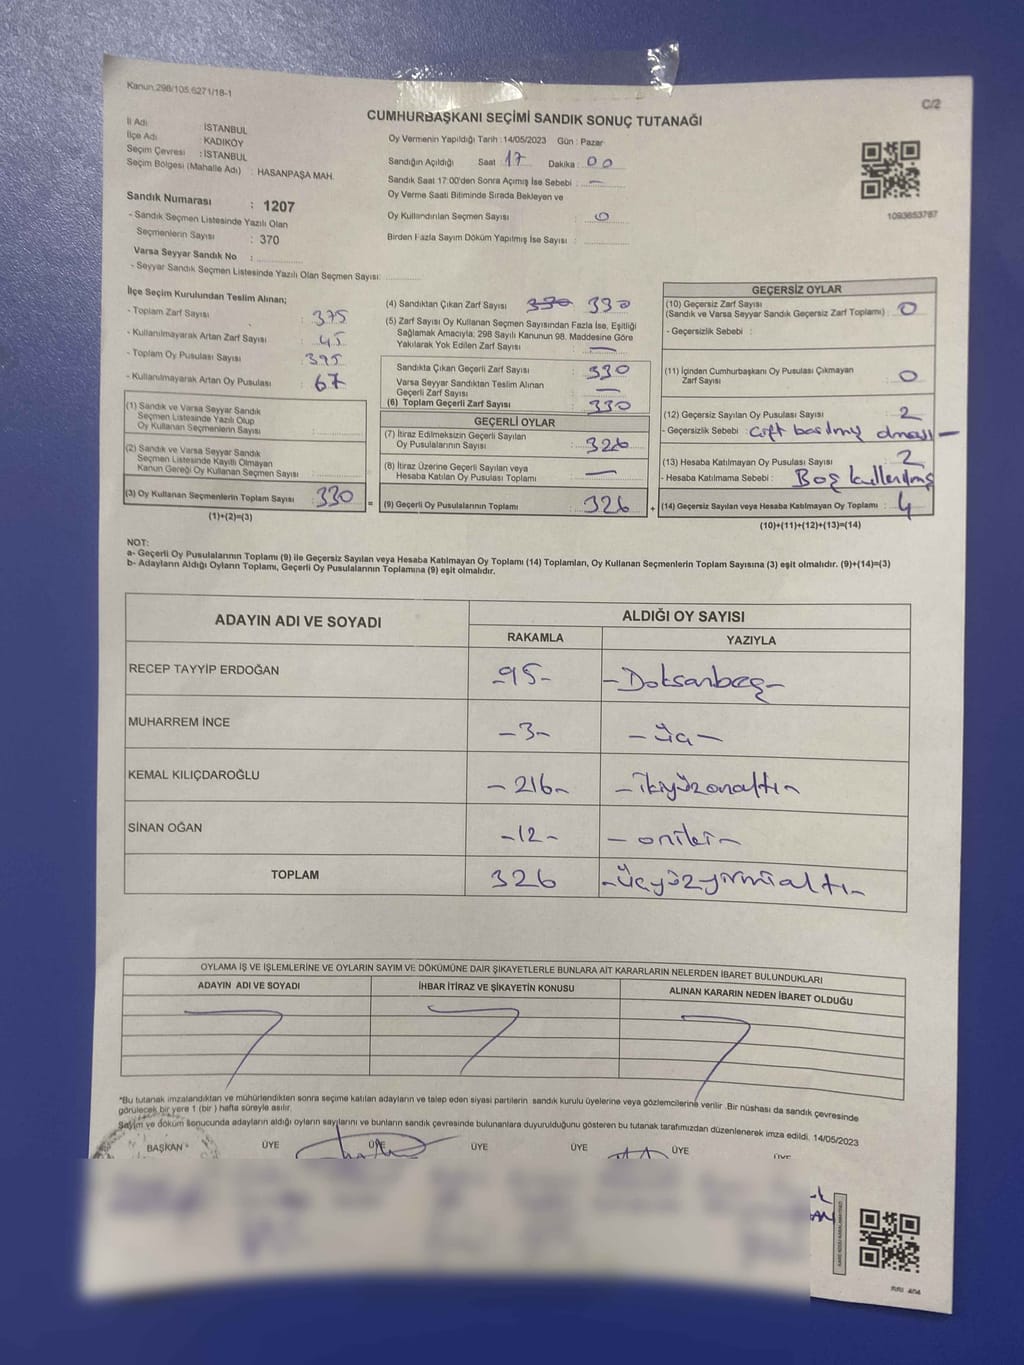 Kanun:298/105,6271/18-1
C/2
CUMHURBAŞKANI SEÇİMİ SANDIK SONUÇ TUTANAĞI
İl Adı İSTANBUL
İlçe Adı KADIKÖY
Seçim Çevresi : İSTANBUL
Seçim Bölgesi (Mahalle Adı) : HASANPAŞA MAH.
Sandık Numarası : 1207
- Sandık Seçmen Listesinde Yazılı Olan
Seçmenlerin Sayısı : 370
Varsa Seyyar Sandık No :
- Seyyar Sandık Seçmen Listesinde Yazılı Olan Seçmen Sayısı:
Oy Vermenin Yapıldığı Tarih : 14/05/2023 Gün : Pazar
Sandığın Açıldığı Saat : 17 Dakika : 00
Sandık Saat 17:00'den Sonra Açımış İse Sebebi : —
Oy Verme Saati Bitiminde Sırada Bekleyen ve
Oy Kullandırılan Seçmen Sayısı : 0
Birden Fazla Sayım Döküm Yapılmış İse Sayısı :
1093653767
İlçe Seçim Kurulundan Teslim Alınan;
- Toplam Zarf Sayısı : 375
- Kullanılmayarak Artan Zarf Sayısı : 45
- Toplam Oy Pusulası Sayısı : 395
- Kullanılmayarak Artan Oy Pusulası : 67
(1) Sandık ve Varsa Seyyar Sandık
Seçmen Listesinde Yazılı Olup
Oy Kullanan Seçmenlerin Sayısı :
(2) Sandık ve Varsa Seyyar Sandık
Seçmen Listesinde Kayıtlı Olmayan
Kanun Gereği Oy Kullanan Seçmen Sayısı :
(3) Oy Kullanan Seçmenlerin Toplam Sayısı : 330
(1)+(2)=(3)
(4) Sandıktan Çıkan Zarf Sayısı : 330 330
(5) Zarf Sayısı Oy Kullanan Seçmen Sayısından Fazla İse, Eşitliği
Sağlamak Amacıyla; 298 Sayılı Kanunun 98. Maddesine Göre
Yakılarak Yok Edilen Zarf Sayısı : —
Sandıkta Çıkan Geçerli Zarf Sayısı : 330
Varsa Seyyar Sandıktan Teslim Alınan
Geçerli Zarf Sayısı : —
(6) Toplam Geçerli Zarf Sayısı : 330
GEÇERLİ OYLAR
(7) İtiraz Edilmeksizin Geçerli Sayılan
Oy Pusulalarının Sayısı : 326
(8) İtiraz Üzerine Geçerli Sayılan veya
Hesaba Katılan Oy Pusulası Toplamı : —
=
(9) Geçerli Oy Pusulalarının Toplamı : 326
+
GEÇERSİZ OYLAR
(10) Geçersiz Zarf Sayısı
(Sandık ve Varsa Seyyar Sandık Geçersiz Zarf Toplamı) : 0
- Geçersizlik Sebebi :
(11) İçinden Cumhurbaşkanı Oy Pusulası Çıkmayan
Zarf Sayısı : 0
(12) Geçersiz Sayılan Oy Pusulası Sayısı : 2
- Geçersizlik Sebebi : Çift basılmış olması —
(13) Hesaba Katılmayan Oy Pusulası Sayısı : 2
- Hesaba Katılmama Sebebi : Boş kullanılmış
(14) Geçersiz Sayılan veya Hesaba Katılmayan Oy Toplamı : 4
(10)+(11)+(12)+(13)=(14)
NOT:
a- Geçerli Oy Pusulalarının Toplamı (9) ile Geçersiz Sayılan veya Hesaba Katılmayan Oy Toplamı (14) Toplamları, Oy Kullanan Seçmenlerin Toplam Sayısına (3) eşit olmalıdır. (9)+(14)=(3)
b- Adayların Aldığı Oyların Toplamı, Geçerli Oy Pusulalarının Toplamına (9) eşit olmalıdır.
ADAYIN ADI VE SOYADI ALDIĞI OY SAYISI
RAKAMLA YAZIYLA
RECEP TAYYİP ERDOĞAN -95- -Doksanbeş-
MUHARREM İNCE -3- -üç-
KEMAL KILIÇDAROĞLU -216- -ikiyüzonaltı-
SİNAN OĞAN -12- -oniki-
TOPLAM 326 -üçyüzyirmialtı-
OYLAMA İŞ VE İŞLEMLERİNE VE OYLARIN SAYIM VE DÖKÜMÜNE DAİR ŞİKAYETLERLE BUNLARA AİT KARARLARIN NELERDEN İBARET BULUNDUKLARI
ADAYIN ADI VE SOYADI İHBAR İTİRAZ VE ŞİKAYETİN KONUSU ALINAN KARARIN NEDEN İBARET OLDUĞU
*Bu tutanak imzalandıktan ve mühürlendikten sonra seçime katılan adayların ve talep eden siyasi partilerin sandık kurulu üyelerine veya gözlemcilerine verilir .Bir nüshası da sandık çevresinde
görülecek bir yere 1 (bir ) hafta süreyle asılır.
Sayım ve döküm sonucunda adayların aldığı oyların sayılarını ve bunların sandık çevresinde bulunanlara duyurulduğunu gösteren bu tutanak tarafımızdan düzenlenerek imza edildi. 14/05/2023
BAŞKAN ÜYE ÜYE ÜYE ÜYE ÜYE ÜYE